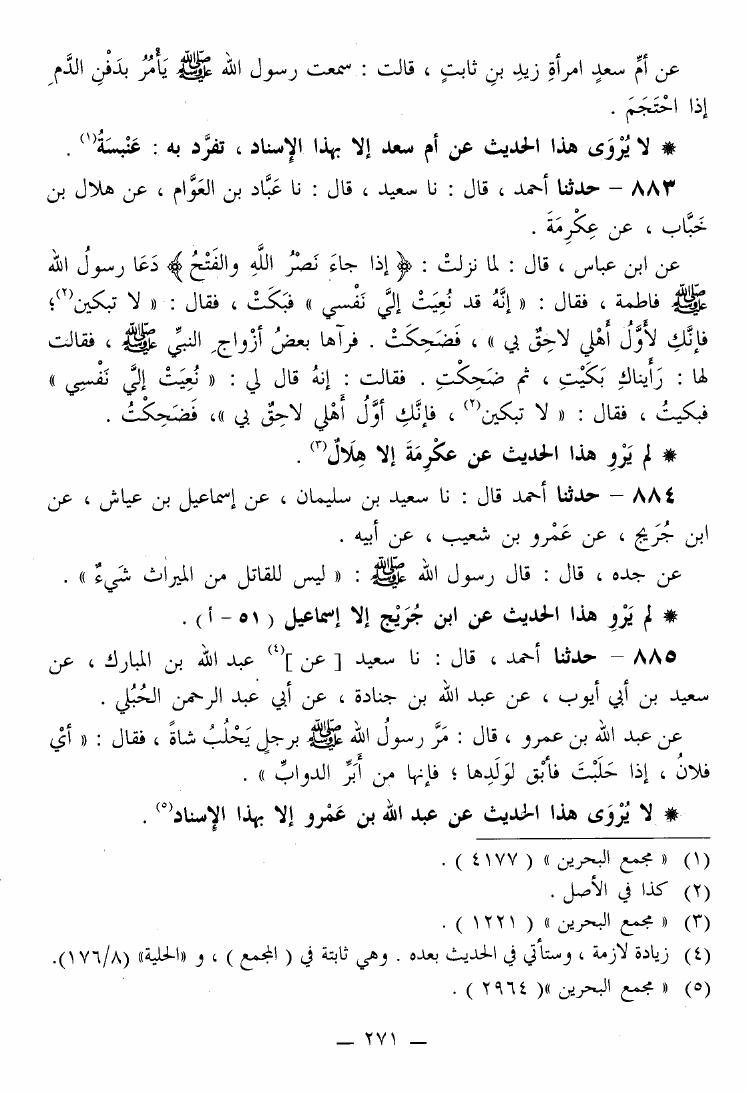 عن أمِّ سعدٍ امرأةِ زيدِ بنِ ثابتٍ ، قالت : سمعت رسول الله ﷺ يَأْمُرُ بدَفْنِ الدَّمِ
إذا احْتَجَمَ .
* لا يُرْوَى هذا الحديث عن أم سعد إلا بهذا الإسناد ، تفرَّد به : عَنْبَسَةُ(١) .
٨٨٣ – حدثنا أحمد ، قال : نا سعيد ، قال : نا عبَّاد بن العَوَّام ، عن هلال بن
خَبَّاب ، عن عِكْرِمَةَ .
عن ابن عباس ، قال : لما نزلتْ : ﴿ إذا جاءَ نَصْرُ اللَّهِ والفَتْحُ ﴾ دَعَا رسولُ الله
ﷺ فاطمة ، فقال : « إنَّهُ قد نُعِيَتْ إليَّ نَفْسي » فبَكَتْ ، فقال : « لا تبكين(٢)؛
فإنَّكِ لأوَّلُ أهْلي لاحِقٌ بي » ، فَضَحِكَتْ . فرآها بعضُ أزْواجِ النبيِّ ﷺ ، فقالت
لها : رَأيناكِ بَكَيْتِ ، ثم ضَحِكْتِ . فقالت : إنهُ قال لي : « نُعِيَتْ إليَّ نَفْسِي »
فبكيتُ ، فقال : « لا تبكين(٢) ، فإنَّكِ أوَّلُ أهْلي لاحِقٌ بي »، فَضَحِكْتُ .
* لم يَرْوِ هذا الحديث عن عكْرِمَةَ إلا هِلَالٌ(٣) .
٨٨٤ – حدثنا أحمد قال : نا سعيد بن سليمان ، عن إسماعيل بن عياش ، عن
ابن جُرَيج ، عن عَمْرو بن شعيب ، عن أبيه .
عن جده ، قال : قال رسول الله ﷺ : « ليس للقاتل من الميراث شَيءٌ » .
* لم يَرْوِ هذا الحديث عن ابن جُرَيْج إلا إسماعيل ( ٥١ – أ ) .
٨٨٥ – حدثنا أحمد ، قال : نا سعيد [ عن ](٤) عبد الله بن المبارك ، عن
سعيد بن أبي أيوب ، عن عبد الله بن جنادة ، عن أبي عبد الرحمن الحُبُلي .
عن عبد الله بن عمرو ، قال : مَرَّ رسولُ الله ﷺ برجلٍ يَحْلُبُ شاةً ، فقال : « أيْ
فلانُ ، إذا حَلَبْتَ فأبْق لوَلَدِها ؛ فإنها من أبَرِّ الدوابِّ » .
* لا يُرْوَى هذا الحديث عن عبد الله بن عَمْرو إلا بهذا الإسناد(٥) .
(١) « مجمع البحرين » ( ٤١٧٧ ) .
(٢) كذا في الأصل .
(٣) « مجمع البحرين » ( ١٢٢١ ) .
(٤) زيادة لازمة ، وستأتي في الحديث بعده . وهي ثابتة في ( المجمع ) ، و «الحلية» (١٧٦/٨).
(٥) « مجمع البحرين »( ٢٩٦٤ ) .
— ٢٧١ —